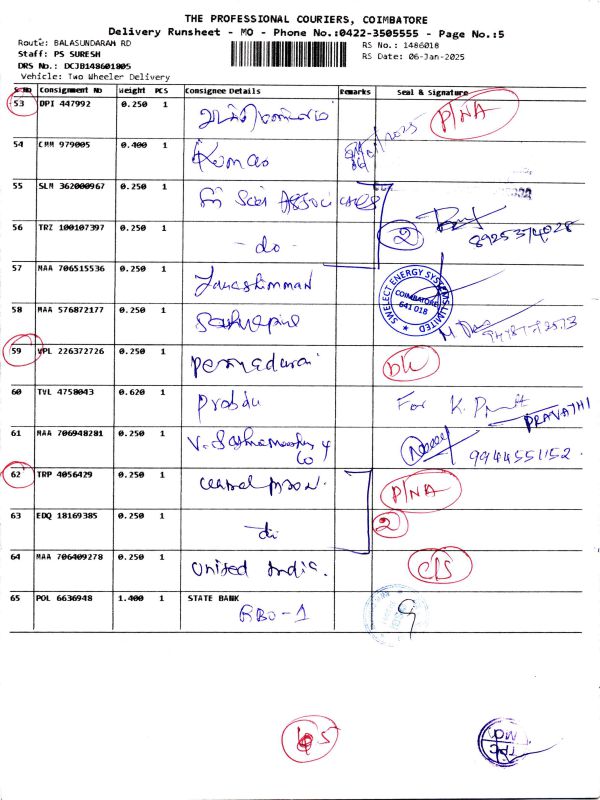 THE PROFESSIONAL COURIERS, COIMBATORE
Delivery Runsheet - MO - Phone No.:0422-3505555 - Page No.:5
Route: BALASUNDARAM RD
RS No.: 1486018
Staff: PS SURESH
RS Date: 06-Jan-2025
DRS No.: DCJB148601805
Vehicle: Two Wheeler Delivery
S.No Consignment No Weight PCS Consignee Details Remarks Seal & Signature
53 DPI 447992 0.250 1 P/NA
54 CMM 979005 0.400 1 Kumar
55 SLM 362000967 0.250 1 Sri Sai Associates
56 TRZ 100107397 0.250 1 - do - 2 8925374028
57 MAA 706515536 0.250 1
SWELECT ENERGY SYSTEMS LIMITED COIMBATORE 641 018
58 MAA 576872177 0.250 1
59 VPL 226372726 0.250 1
60 TVL 4758043 0.620 1 Prabhu For K. PRAVATHI
61 MAA 706948281 0.250 1 & Co 9944551152
62 TRP 4056429 0.250 1 Central P/NA
63 EDQ 18169385 0.250 1 do 2
64 MAA 706409278 0.250 1 United India.
65 POL 6636948 1.400 1 STATE BANK
RBO-1 9